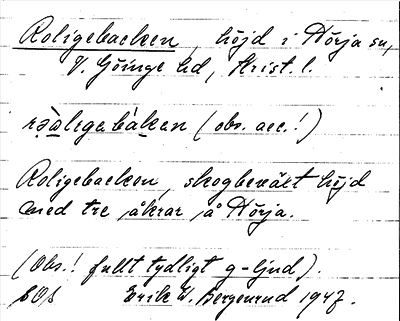 Roligebacken, höjd i Nörja sn,
V. Göinge hd, Krist. l.
(obs. acc.!)
Roligebacken, skogbeväxt höjd
med tre åkrar å Nörja.
(Obs.! fullt tydligt g-ljud).
SOA Erik W. Bergenrud 1947.